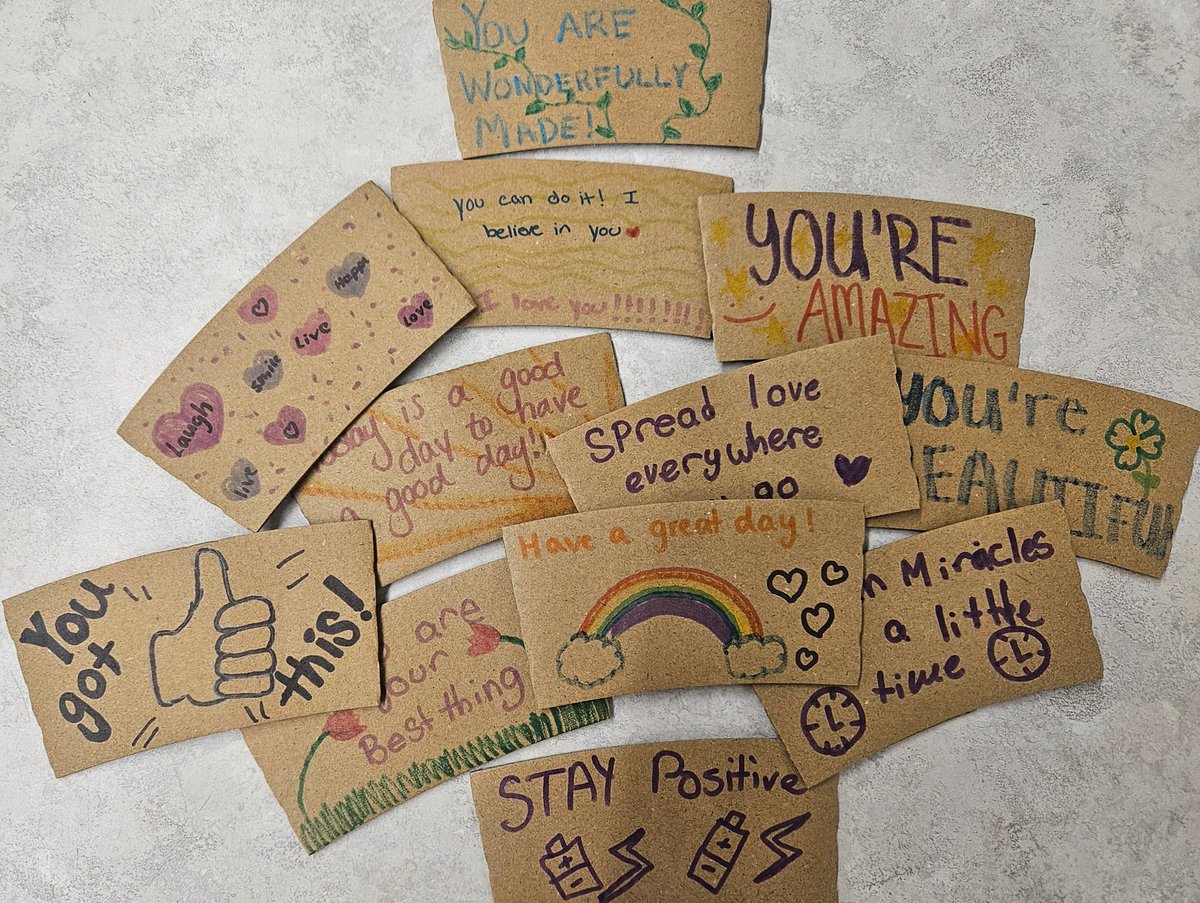 YOU ARE
WONDERFULLY
MADE!
you can do it! I
believe in you
I love you!!!!!!!!
YOU'RE
AMAZING
Happi
Love
Live
Smile
Laugh
live
is a good
day to have
a good day!!
a good
Spread love
everywhere
go
YOU're
BEAUTIFUL
You
got
this!
are
your
Best thing
Have a great day!
Miracles
a little
time
STAY Positive
+
-
+
-